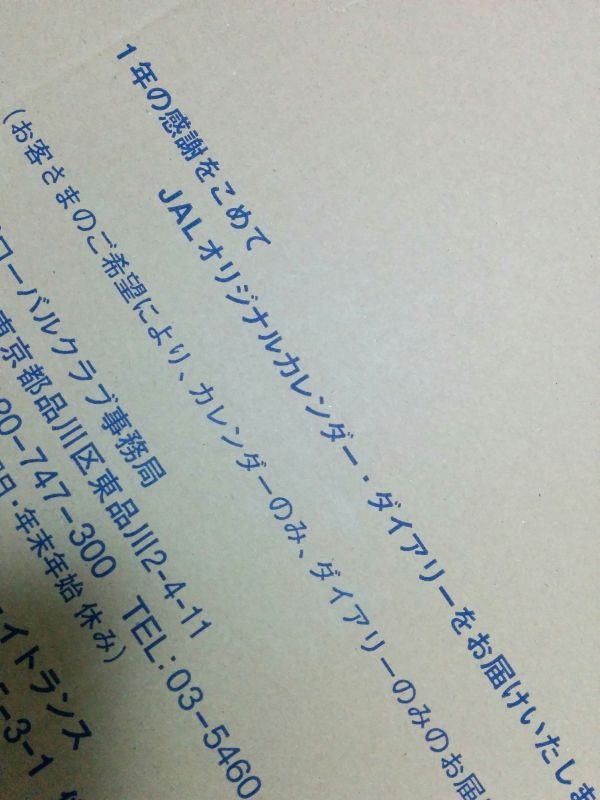 1年の感謝をこめて
JALオリジナルカレンダー・ダイアリーをお届けいたしま
(お客さまのご希望により、カレンダーのみ、ダイアリーのみのお届
ローバルクラブ事務局
東京都品川区東品川2-4-11
20-747-300 TEL:03-5460
日・年末年始 休み)
イトランス
5-3-1